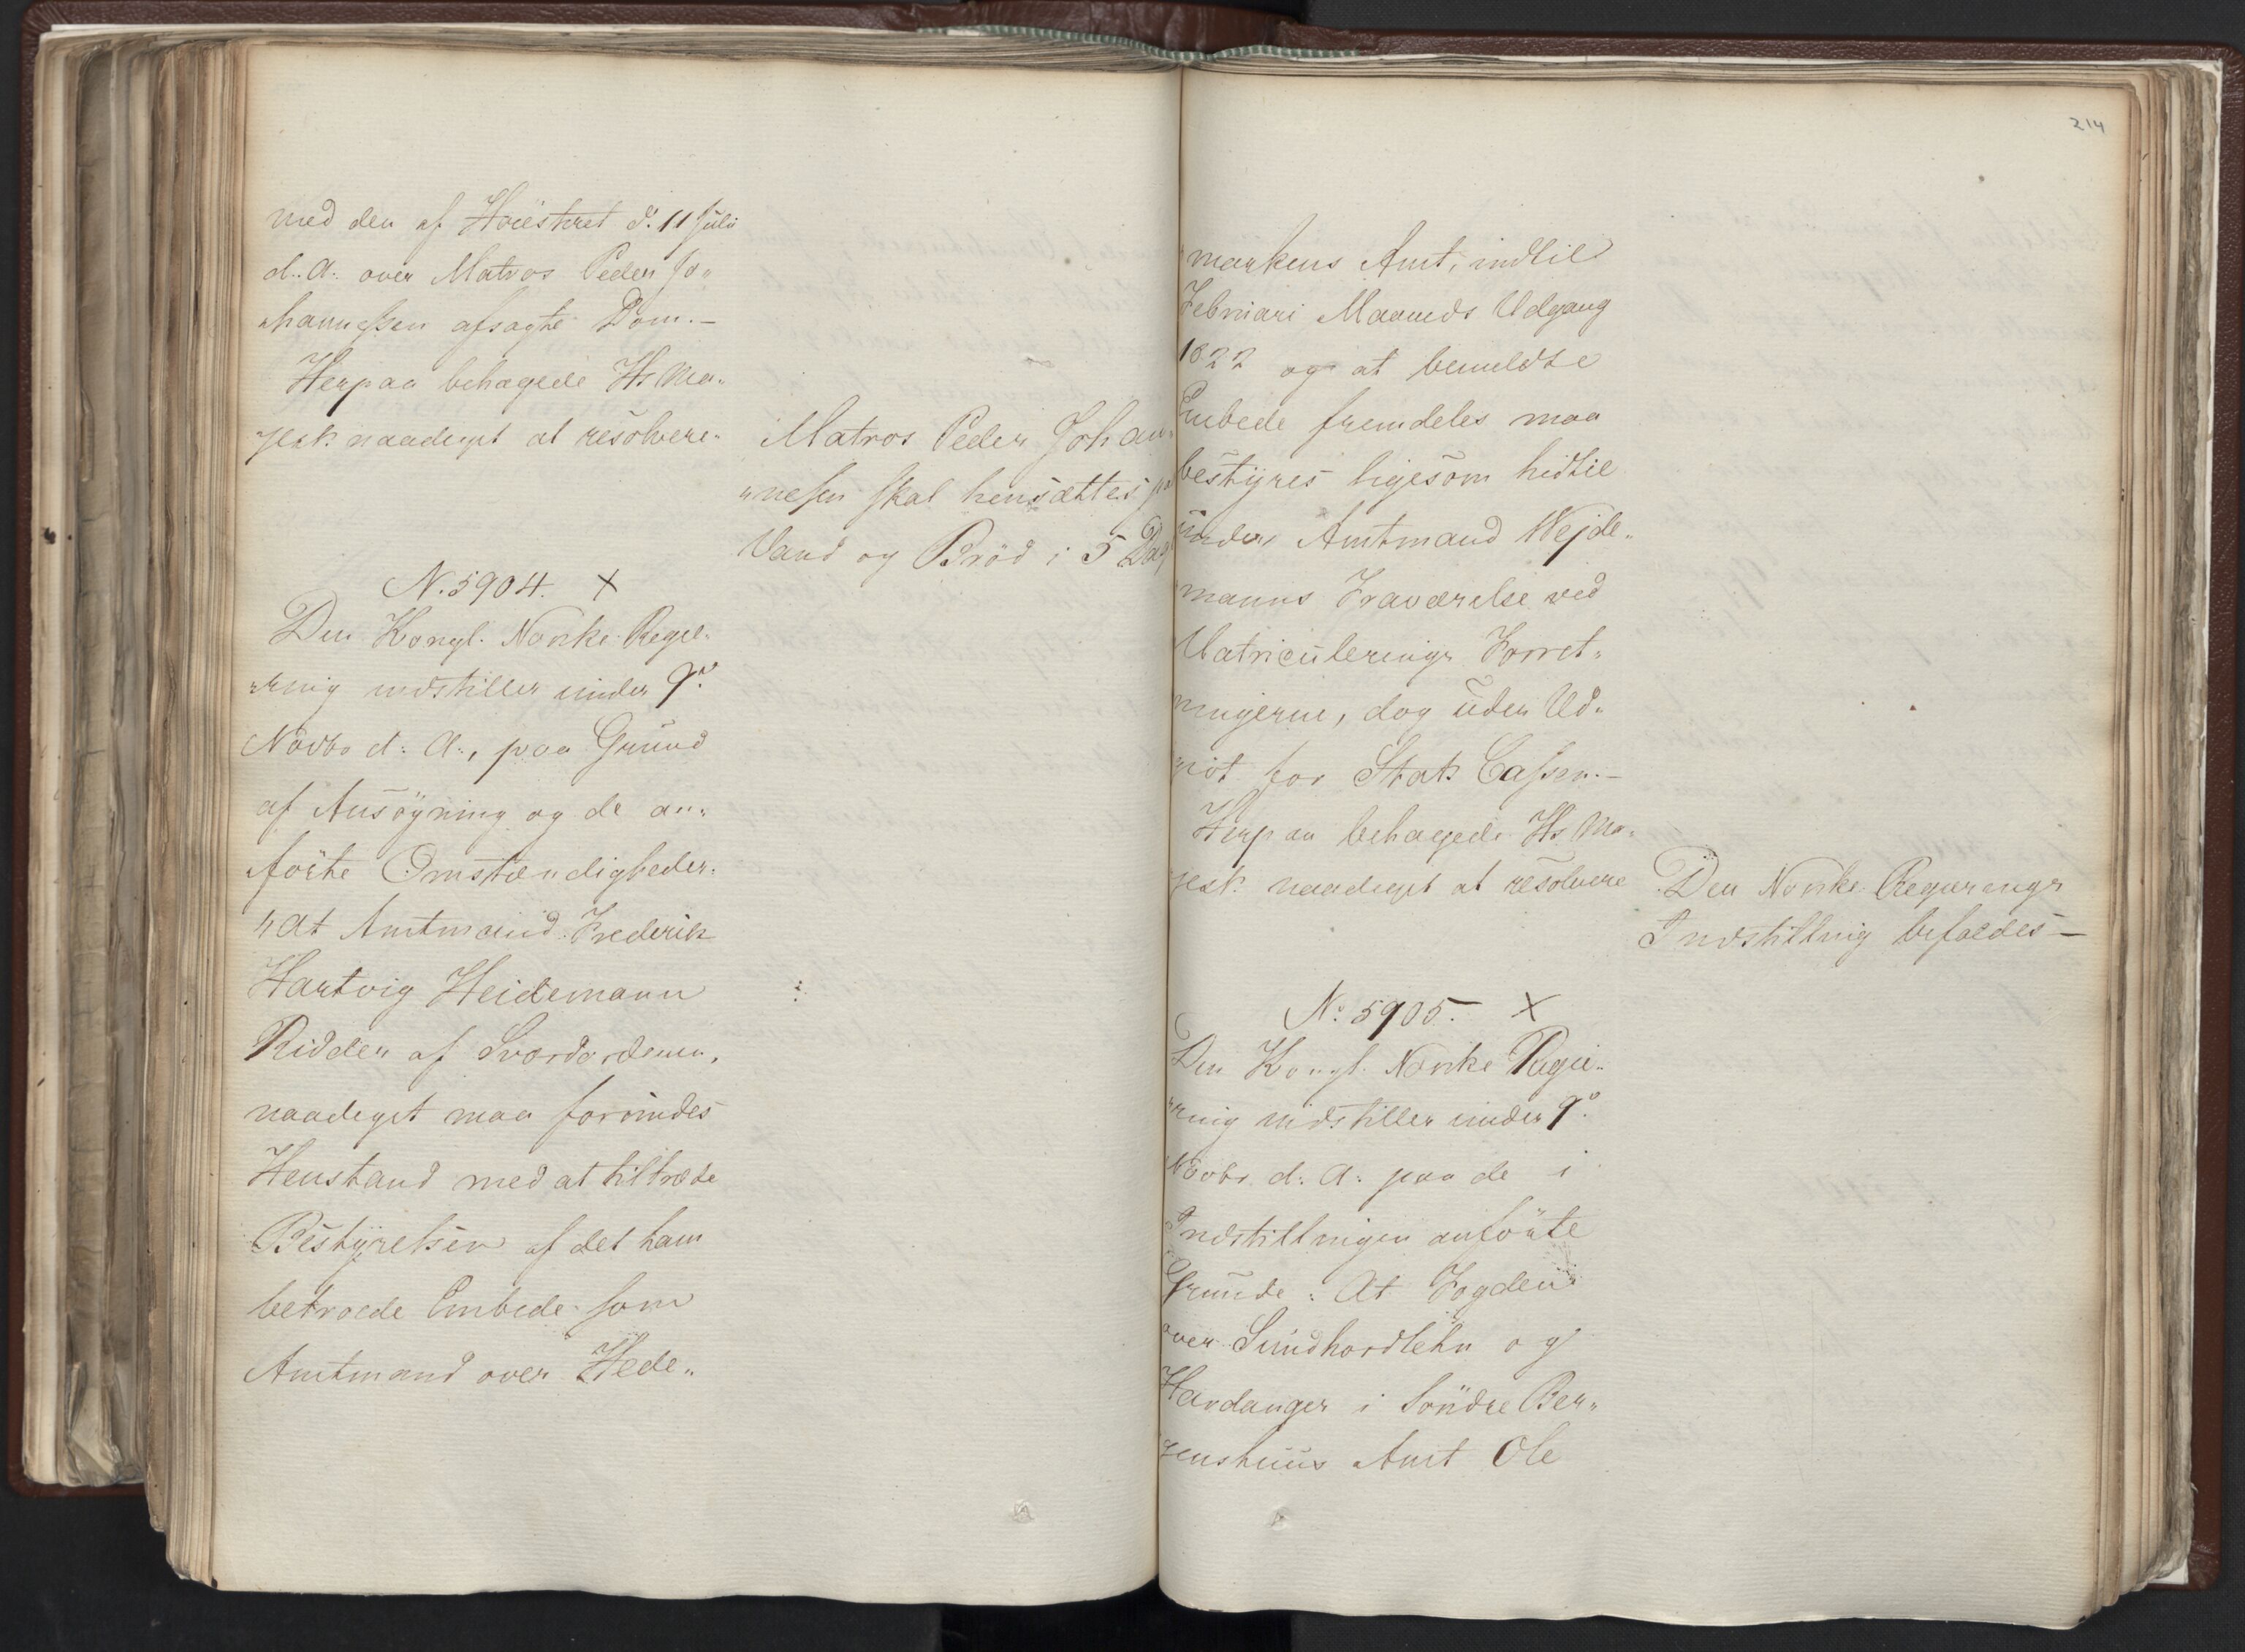 med den af Høiesteret d. 11 Julii
d. A. over Matros Peder Jo„
„hannessen afsagte Dom.—
Herpaa behagede Hs Ma„
jest: naadigst at resolvere„
Matros Peder Johan„
„nesen skal hensættes paa
Vand og Bröd i 5 Dage
N. 5904. X
Den Kongl. Norske Rege„
„ring indstiller under 9de
Novbr d: A:, paa Grund
af Ansögning og de an„
förte Omstændigheder:
„At Amtmand Frederik
Hartvig Heidemann
Ridder af Sværdordenen,
naadigst maa forundes
Henstand med at tiltræde
Bestyrelsen af det ham
betroede Embede som
Amtmand over Hede„
214
„markens Amt, indtil
Februari Maaneds Udgang
1822 og at bemeldte
Embede fremdeles maa
bestyres ligesom hidtil
under Amtmand Wejde„
„manns Fraværelse ved
Matriculerings Forret„
„ningerne, dog uden Ud„
„gift for Stats Cassen.—
Herpaa behagede Hs Ma„
jest: naadigst at resolvere
Den Norske Regierings
Indstilling bifaldes—
No. 5905. X
Den Kongl. Norske Regie„
„ring indstiller under 9de
Novbr. d: A: paa de i
Indstillingen anförte
Grunde: At Fogden
over Sundhordlehn og
Hardanger i Söndre Ber„
genshuus Amt Ole